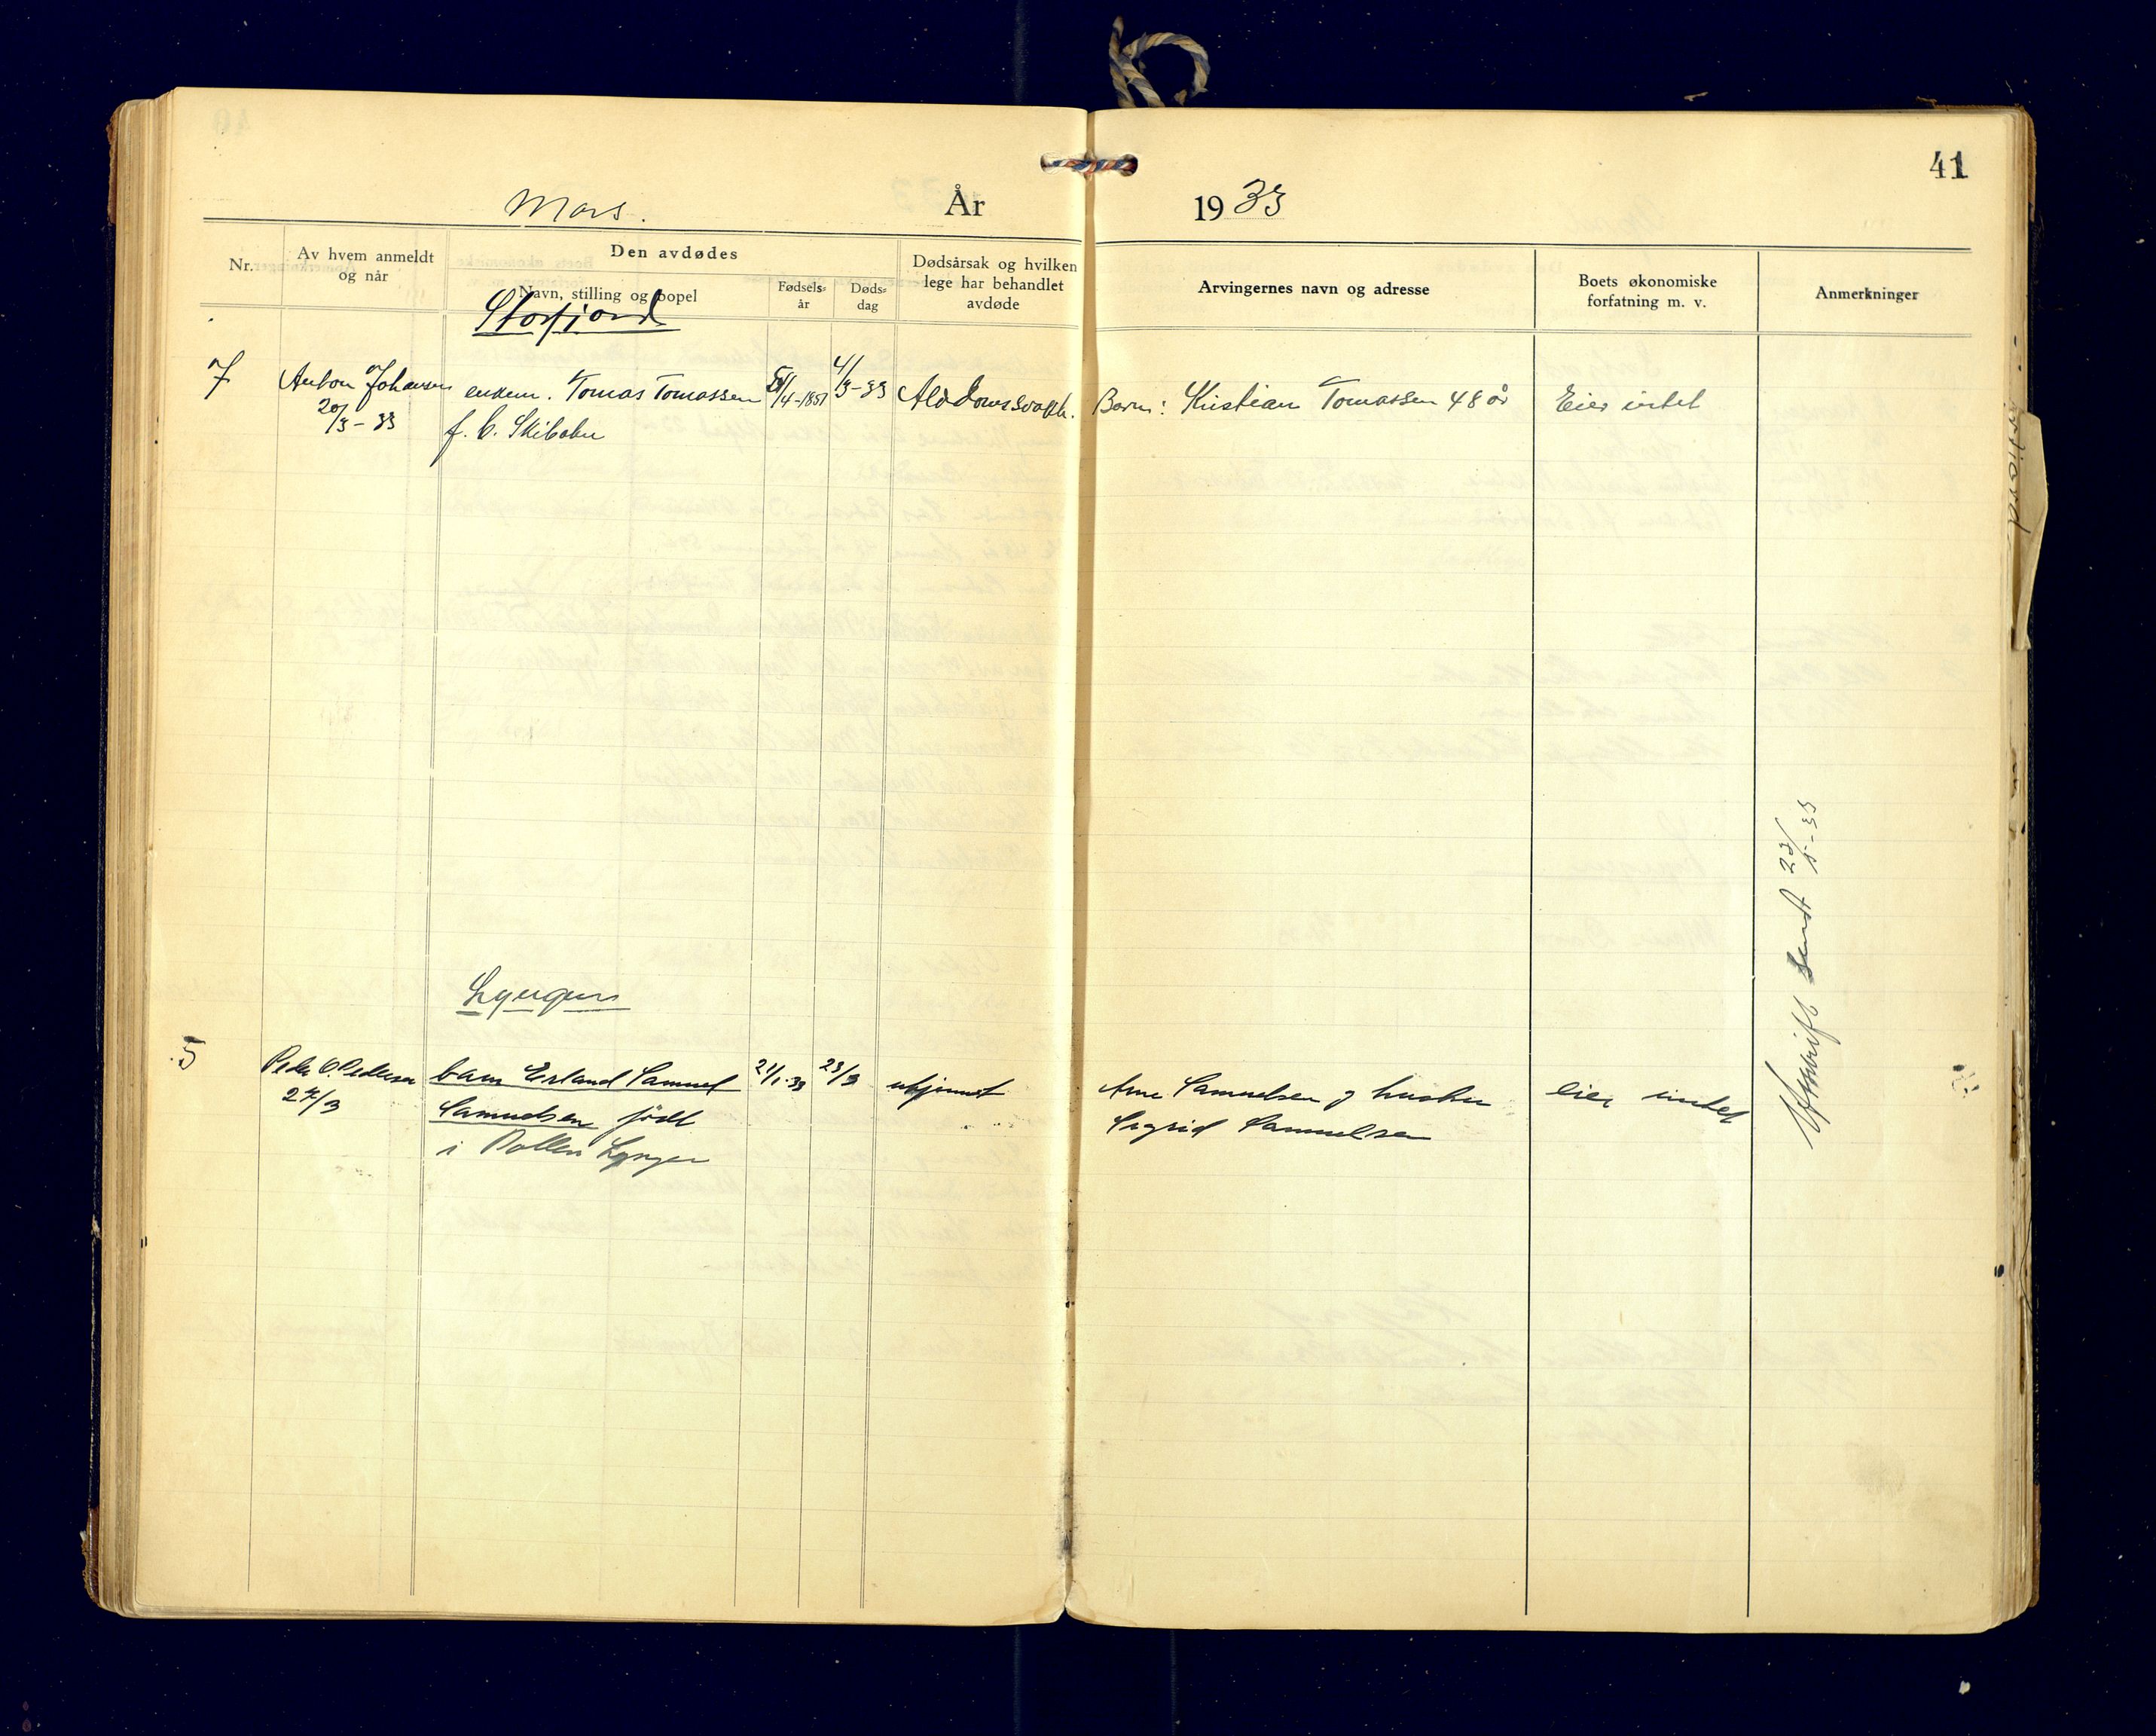 41
Mars. År 1933
Nr.
Av hvem anmeldt og når
Den avdødes
Navn, stilling og bopel
Fødselsår
Dødsdag
Dødsårsak og hvilken lege har behandlet avdøde
Arvingernes navn og adresse
Boets økonomiske forfatning m. v.
Anmerkninger
Storfjord
7 Anton Johansen enkem. Tomas Tomassen /4-1851 4/3-33 Alderdomssvakh. Barn: Kristian Tomassen 48 år Eier intet
20/3-33 f. b. Skibotn
Lyngen
5 Peder O. Pedersen barn Erland Samuel 21/1-33 23/3 ukjennt Arne Samuelsen og hustru eier intet
24/3 Samuelsen født Sigrid Samuelsen
i Pollen Lyngen
Utskrift sendt 23/5-33